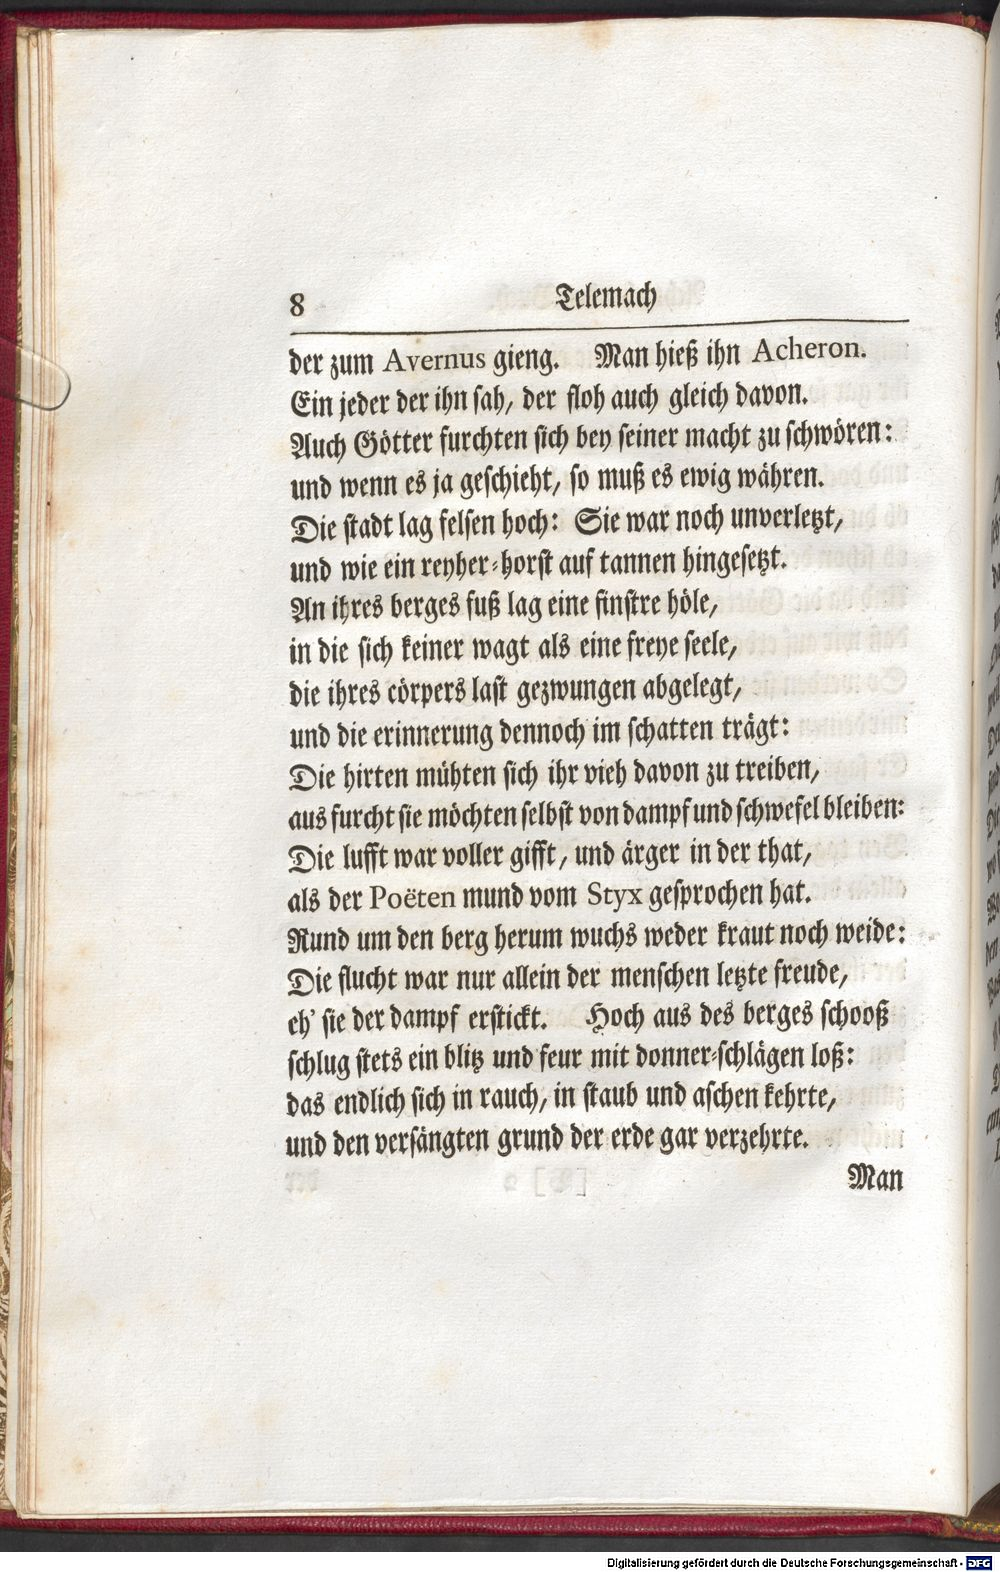 8 Telemach
der zum Avernus gieng. Man hieß ihn Acheron.
Ein jeder der ihn sah, der floh auch gleich davon.
Auch Götter furchten sich bey seiner macht zu schwören:
und wenn es ja geschieht, so muß es ewig währen.
Die stadt lag felsen hoch: Sie war noch unverletzt,
und wie ein reyher-horst auf tannen hingesetzt.
An ihres berges fuß lag eine finstre höle,
in die sich keiner wagt als eine freye seele,
die ihres cörpers last gezwungen abgelegt,
und die erinnerung dennoch im schatten trägt:
Die hirten mühten sich ihr vieh davon zu treiben,
aus furcht sie möchten selbst von dampf und schwefel bleiben:
Die lufft war voller gifft, und ärger in der that,
als der Poëten mund vom Styx gesprochen hat.
Rund um den berg herum wuchs weder kraut noch weide:
Die flucht war nur allein der menschen letzte freude,
eh' sie der dampf erstickt. Hoch aus des berges schooß
schlug stets ein blitz und feur mit donner-schlägen loß:
das endlich sich in rauch, in staub und aschen kehrte,
und den versängten grund der erde gar verzehrte.
Man
Digitalisierung gefördert durch die Deutsche Forschungsgemeinschaft - DFG